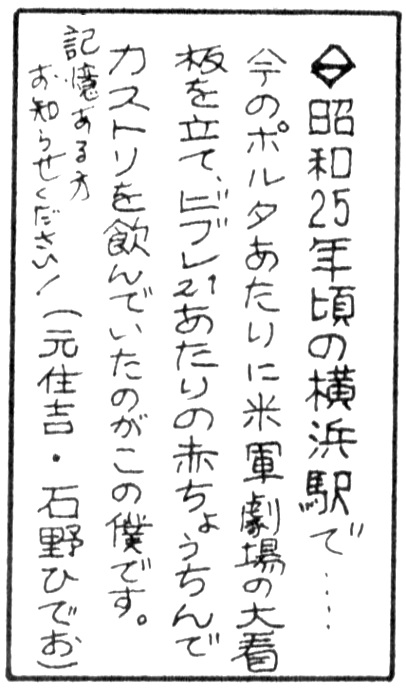 昭和25年頃の横浜駅で……
今のポルタあたりに米軍劇場の大看
板を立て、ビブレ21あたりの赤ちょうちんで
カストリを飲んでいたのがこの僕です。
記憶ある方
お知らせください！(元住吉・石野ひでお)